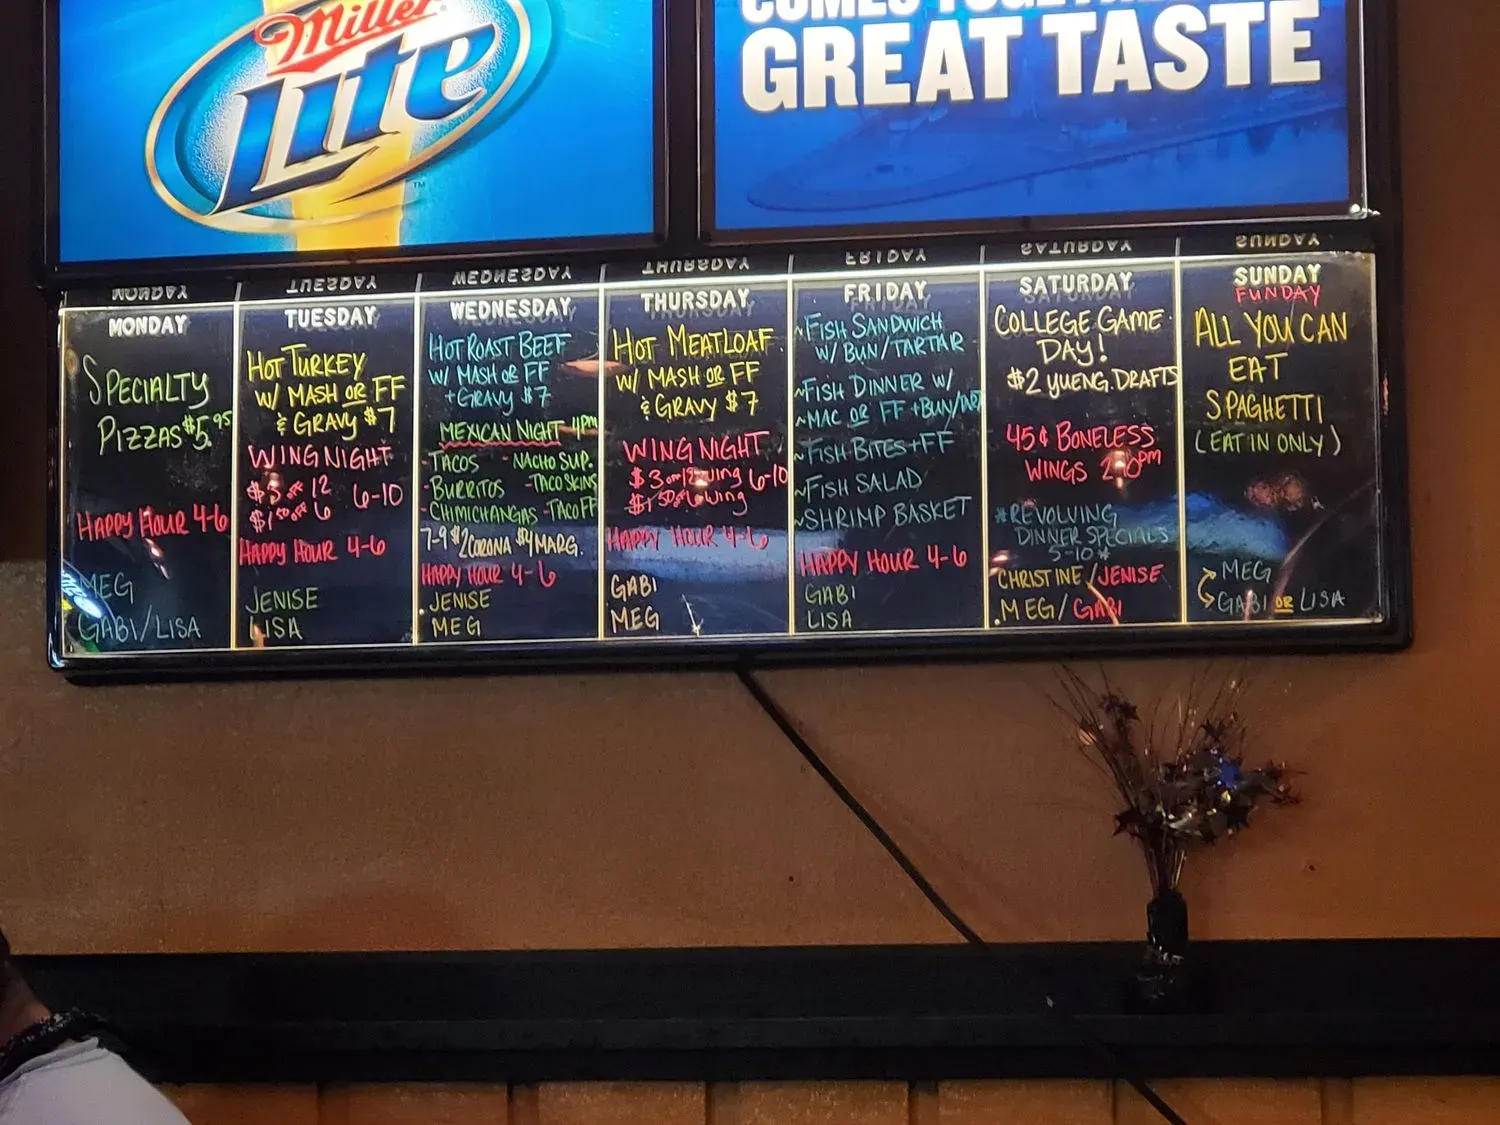 Miller
Lite
™
GREAT TASTE
MONDAY
SPECIALTY
PIZZAS $5.95
HAPPY HOUR 4-6
MEG
GABI/LISA
TUESDAY
HOT TURKEY
W/ MASH OR FF
& GRAVY $7
WING NIGHT
$3 OFF 12 6-10
$1.50 OFF 6
HAPPY HOUR 4-6
JENISE
LISA
WEDNESDAY
HOT ROAST BEEF
W/ MASH OR FF
+ GRAVY $7
MEXICAN NIGHT 4pm
-TACOS -NACHO SUP.
-BURRITOS -TACO SKINS
-CHIMICHANGAS -TACO FF
7-9 $2 CORONA $4 MARG.
HAPPY HOUR 4-6
JENISE
MEG
THURSDAY
HOT MEATLOAF
W/ MASH OR FF
& GRAVY $7
WING NIGHT
$3 off 12 wing 6-10
$1.50 off 6 wing
HAPPY HOUR 4-6
GABI
MEG
FRIDAY
~FISH SANDWICH
W/ BUN/TARTAR
~FISH DINNER W/
~MAC OR FF +BUN/TAR
~FISH BITES+FF
~FISH SALAD
~SHRIMP BASKET
HAPPY HOUR 4-6
GABI
LISA
SATURDAY
COLLEGE GAME
DAY!
$2 YUENG. DRAFTS
45¢ BONELESS
WINGS
*REVOLVING
DINNER SPECIALS
5-10*
CHRISTINE/JENISE
MEG/GABI
SUNDAY
FUNDAY
ALL YOU CAN
EAT
SPAGHETTI
(EAT IN ONLY)
MEG
GABI OR LISA